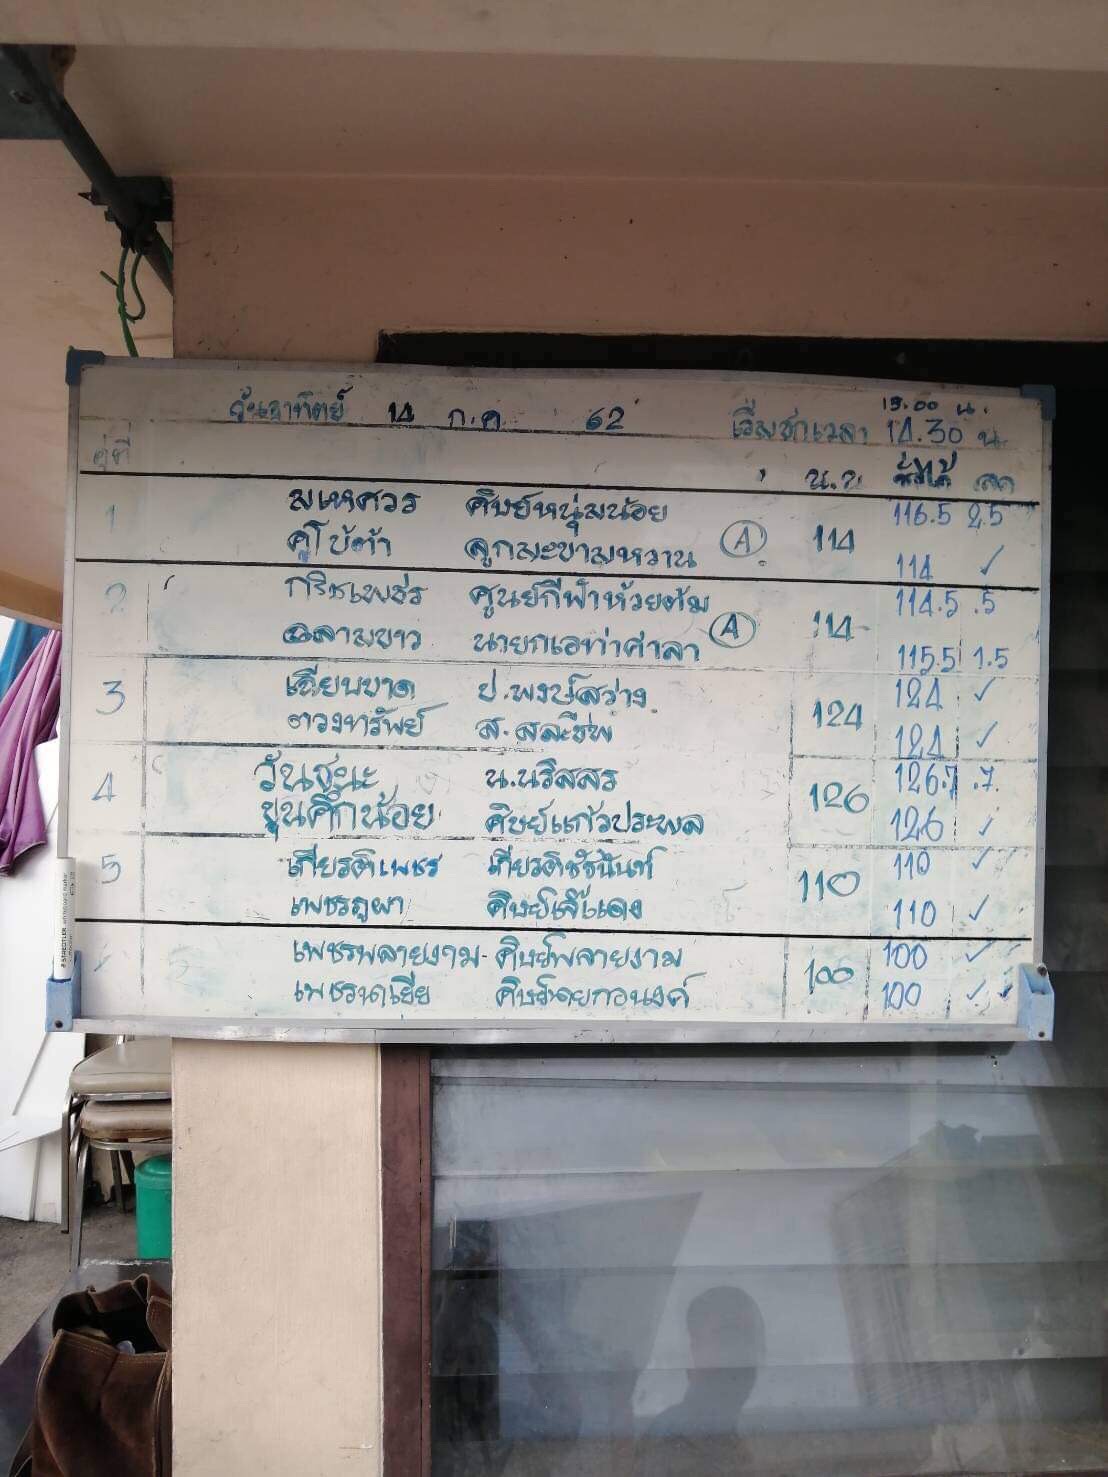 วันอาทิตย์ 14 ก.ค 62 เริ่มชกเวลา 15.00 น.
14.30 น.
คู่ที่ น.น. ชั่งได้ ลด
1 มเหศวร ศิษย์หนุ่มน้อย 114 116.5 2.5
คูโบต้า ลูกมะขามหวาน A 114 ✓
2 กริชเพชร ศูนย์กีฬาห้วยต้ม 114 114.5 .5
ฉลามขาว นายกเอท่าศาลา A 115.5 1.5
3 เฉียบขาด ป.พงษ์สว่าง 124 124 ✓
ตวงทรัพย์ ส. 124 ✓
4 วันชนะ น.นริสสร 126 126.7 .7
ขุนศึกน้อย ศิษย์แก้วประพล 126 ✓
5 เกียรติเพชร เกียรติชัชนันท์ 110 110 ✓
เพชรภูผา 110 ✓
เพชรพลายงาม ศิษย์พลายงาม 100 100 ✓
100 ✓
STAEDTLER